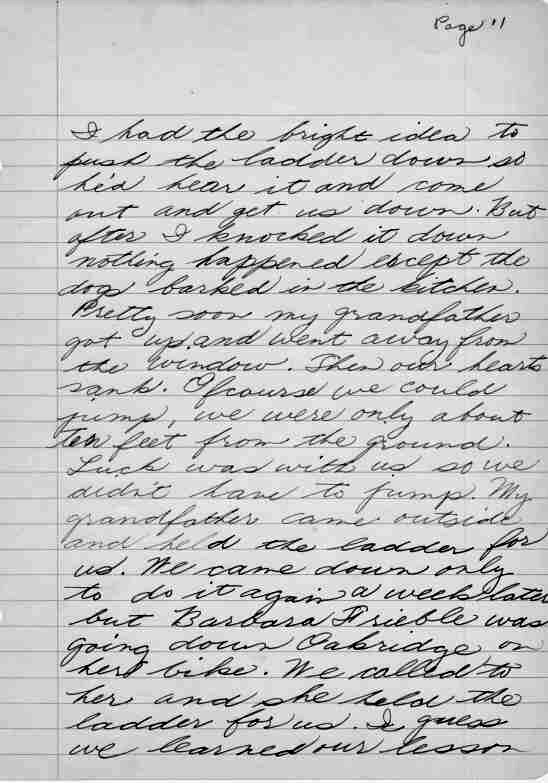 Page 11
I had the bright idea to
push the ladder down so
he'd hear it and come
out and get us down. But
after I knocked it down
nothing happened except the
dogs barked in the kitchen.
Pretty soon my grandfather
got up and went away from
the window. Then our hearts
sank. Ofcourse we could
jump, we were only about
ten feet from the ground.
Luck was with us so we
didn't have to jump. My
grandfather came outside
and held the ladder for
us. We came down only
to do it again a week later
but Barbara Frieble was
going down Oakridge on
her bike. We called to
her and she held the
ladder for us. I guess
we learned our lesson